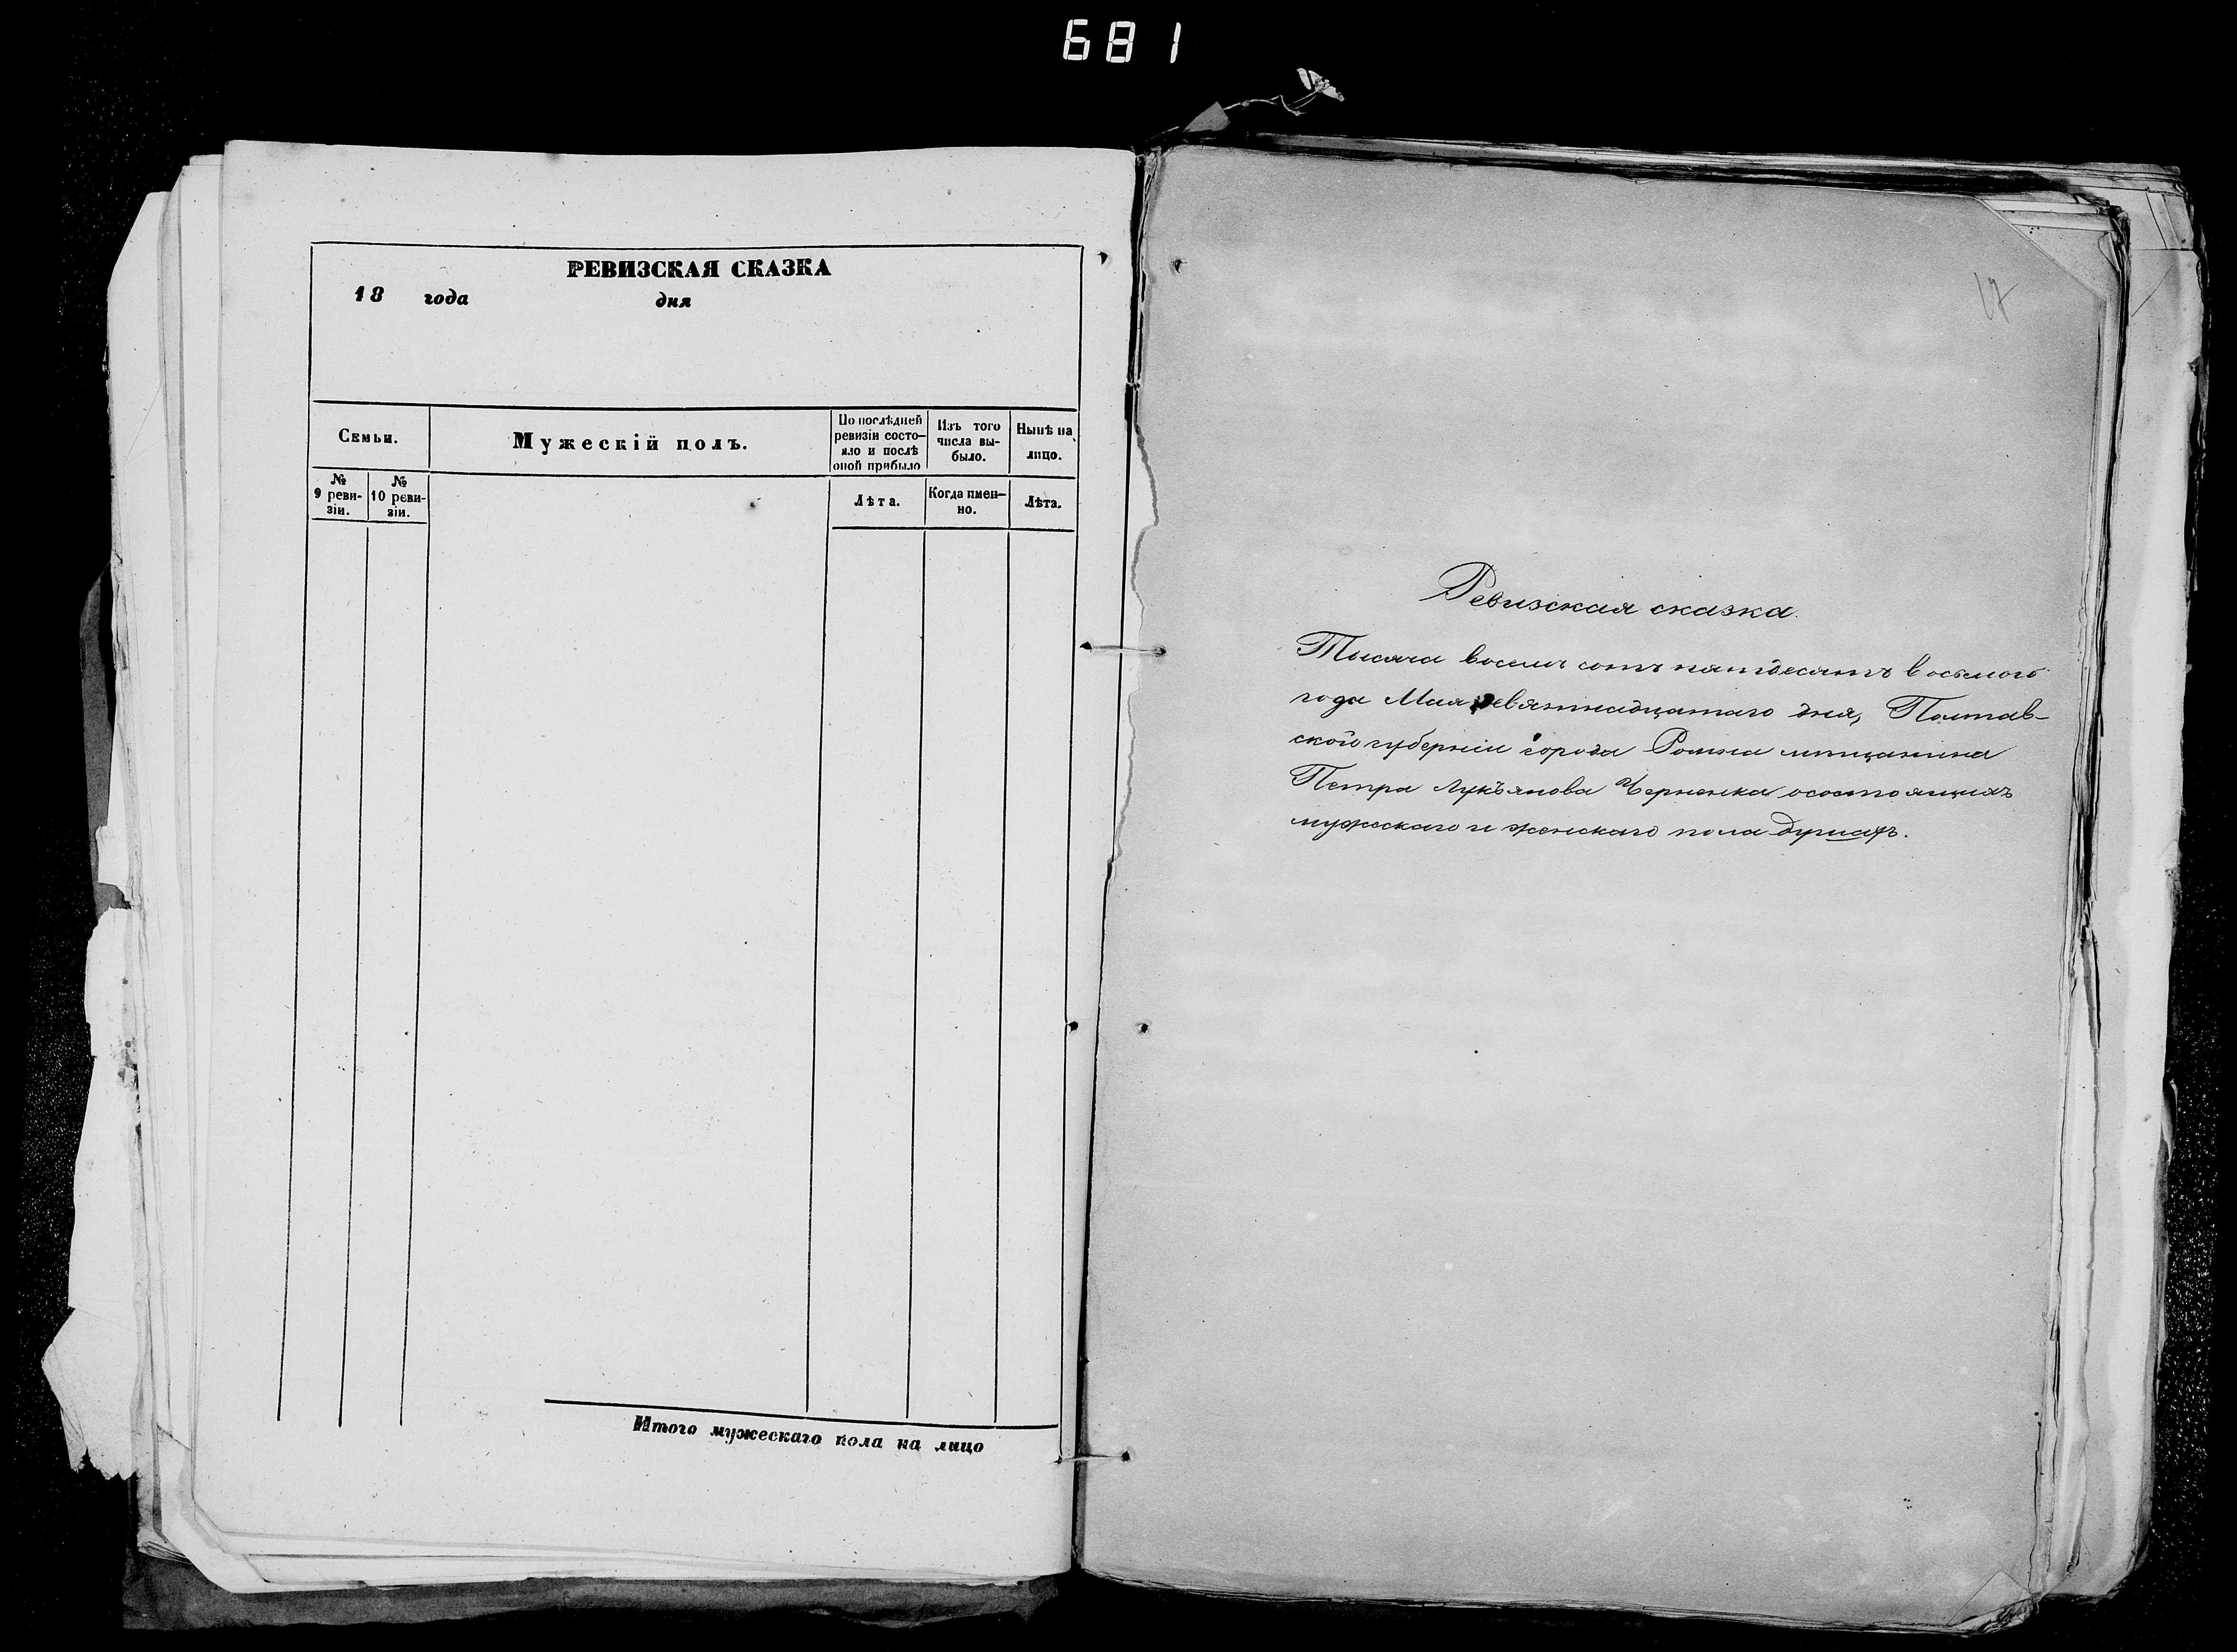 681
РЕВИЗСКАЯ СКАЗКА
18 года дня
Семьи.
Мужескій полъ.
По послѣдней
ревизіи состо-
яло и послѣ
оной прибыло
Изъ того
числа вы-
было.
Нынѣ на
лицо.
№
9 реви-
зіи.
№
10 реви-
зіи.
Лѣта.
Когда имен-
но.
Лѣта.
Итого мужескаго пола на лицо
17
Ревизская сказка.
Тысяча восемь сотъ пятдесятъ восьмого
года Мая девятнадцатаго дня, Полтав-
ской губерніи города Ромна мѣщанина
Петра Лукъянова Черненка осостоящихъ
мужескаго и женскаго пола душахъ.